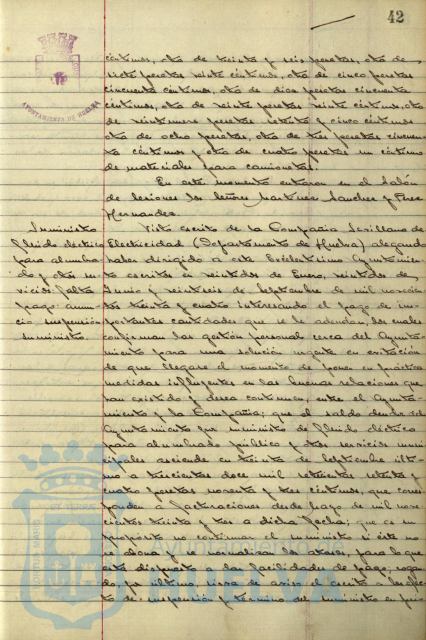 42
AYUNTAMIENTO DE HUELVA
céntimos, otra de treinta y seis pesetas, otra de
siete pesetas veinte céntimos, otra de cinco pesetas
cincuenta céntimos, otra de dias pesetas cincuenta
céntimos, otra de veinte pesetas veinte céntimos, otra
de veintinueve pesetas setenta y cinco céntimos
otra de ocho pesetas, otra de tres pesetas cincuen-
ta céntimos y otra de cuatro pesetas un céntimo
de materiales para camionetas.
En este momento entraron en el Salón
de sesiones los señores Martínez Sanchez y Pérez
Hernandez.
Suministro
fluido eléctrico
para alumbra-
do y otros ser-
vicios: falta
pago: anun-
cio suspensión
suministro.
Visto escrito de la Compañía Sevillana de
Electricidad (Departamento de Huelva) alegando
haber dirigido a este Excelentísimo Ayuntamien-
to escritos en veintidos de Enero, veintidos de
Junio y veintiseis de Septiembre de mil novecien-
tos treinta y cuatro interesando el pago de im-
portantes cantidades que se le adeudan, los cuales
confirman las gestión personal cerca del Ayunta-
miento para una solución urgente en evitación
de que llegare el momento de poner en práctica
medidas influyentes en las buenas relaciones que
han existido y desea continuen, entre el Ayunta-
miento y la Compañía; que el saldo deudor del
Ayuntamiento por suministro de fluido eléctrico
para alumbrado público y otros servicios muni-
cipales asciende en treinta de Septiembre últi-
mo a trescientas doce mil setecientas setenta y
cuatro pesetas noventa y tres céntimos, que corres-
ponden a facturaciones desde Mayo de mil nove-
cientos treinta y tres a dicha fecha; que es su
propósito no continuar el suministro si éste no
se abona y se normalizan los atrasos, para lo que
está dispuesto a las facilidades de pago; rogan-
do, por último, sirva de aviso el escrito a los efec-
tos de suspensión y término del suministro en prin
Ayuntamiento de
HUELVA